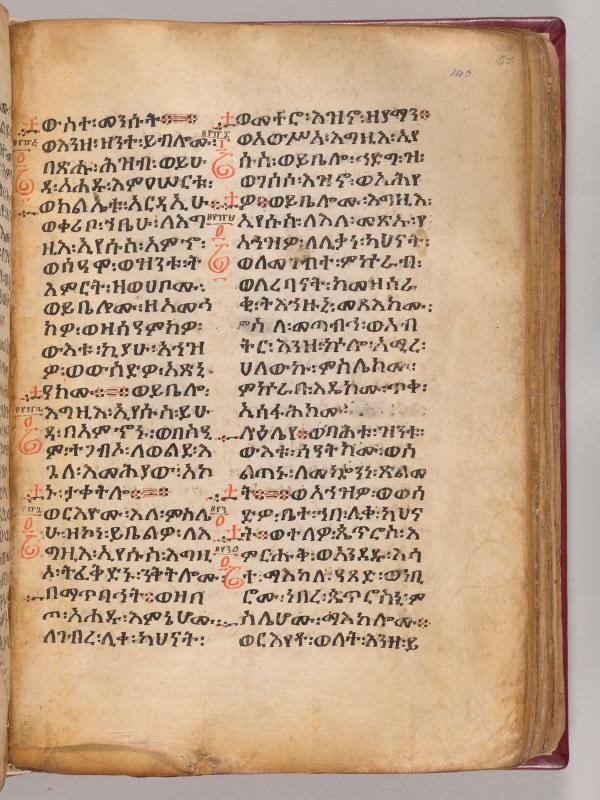 ውስተ፡መንሱት፨
ወእንዘ፡ዘንተ፡ይብሎሙ፡
በጽሑ፡ሕዝብ፡ወይሁ
ዳ፡አሐዱ፡እምዐሠርቱ፡
ወክልኤቱ፡አርዳኢሁ፡
ወቀሪቦ፡ኀቤሁ፡ለእግ
ዚእ፡ኢየሱስ፡አምኆ፡
ወሰዓሞ፡ወዝንቱ፡ት
እምርት፡ዘወሀቦሙ፡
ወይቤሎሙ፡ዘአመኅ
ክዎ፡ወዘሰዓምክዎ፡
ውእቱ፡ኪያሁ፡አኀዝ
ዎ፡ወውስድዎ፡አጽኒ
ዓክሙ፨ወይቤሎ፡
እግዚእ፡ኢየሱስ፡ይሁ
ዳ፡በአምኆኑ፡ወበስዒ
ም፡ትገብኦ፡ለወልደ፡እ
ጓለ፡እመሕያው፡አኮ
ኑ፡ታቀትሎ፨
ወርእዮሙ፡እለ፡ምስሌ
ሁ፡ዘኮነ፡ይቤልዎ፡ለእ
ግዚእ፡ኢየሱስ፡እግዚ
ኦ፡ትፈቅድኑ፡ንቅትሎሙ፡
በማጥባኅት፨ወዘበ
ጦ፡አሐዱ፡እምኔሆሙ፡
ለገብረ፡ሊቀ፡ካህናት፡
ወመተሮ፡እዝኖ፡ዘየማን፨
ወአውሥአ፡እግዚእ፡ኢየ
ሱስ፡ወይቤሎ፡ኀድግ፡ዝ፡
ወገሰሶ፡እዝኖ፡ወሐየ
ዎ፨ወይቤሎሙ፡እግዚእ፡
ኢየሱስ፡ለእለ፡መጽኡ፡የ
አኀዝዎ፡ለሊቃነ፡ካህናት፡
ወለመገብተ፡ምኵራብ፡
ወለረበናት፡ከመዘሰራ
ቂ፡ትእኅዙኒ፡መጻእክሙ፡
ምስለ፡መጣብኅ፡ወእብ
ትር፡እንዘ፡ኵሎ፡አሚረ፡
ሀለውኩ፡ምስሌክሙ፡
ምኵራብ፡እዴክሙ፡ጥቀ፡
ኢሰፋሕክሙ፡
ላዕሌየ፨ወባሕቱ፡ዝንቱ፡
ውእቱ፡ሰዓትክሙ፡ወስ
ልጣኑ፡ለመኰንነ፡ጽልመ
ት፨ወአኀዝዎ፡ወወሰ
ድዎ፡ቤተ፡ኀበ፡ሊቀ፡ካህና
ት፨ወተለዎ፡ጴጥሮስ፡እ
ምርሑቅ፡ወአንደዱ፡እሳ
ተ፡ማእከለ፡ዓጸድ፡ወነቢ
ሮሙ፡ነበረ፡ጴጥሮስኒ፡ም
ስሌሆሙ፡ማእከሎሙ፨
ወርእየቶ፡ወለት፡እንዘ፡ይ